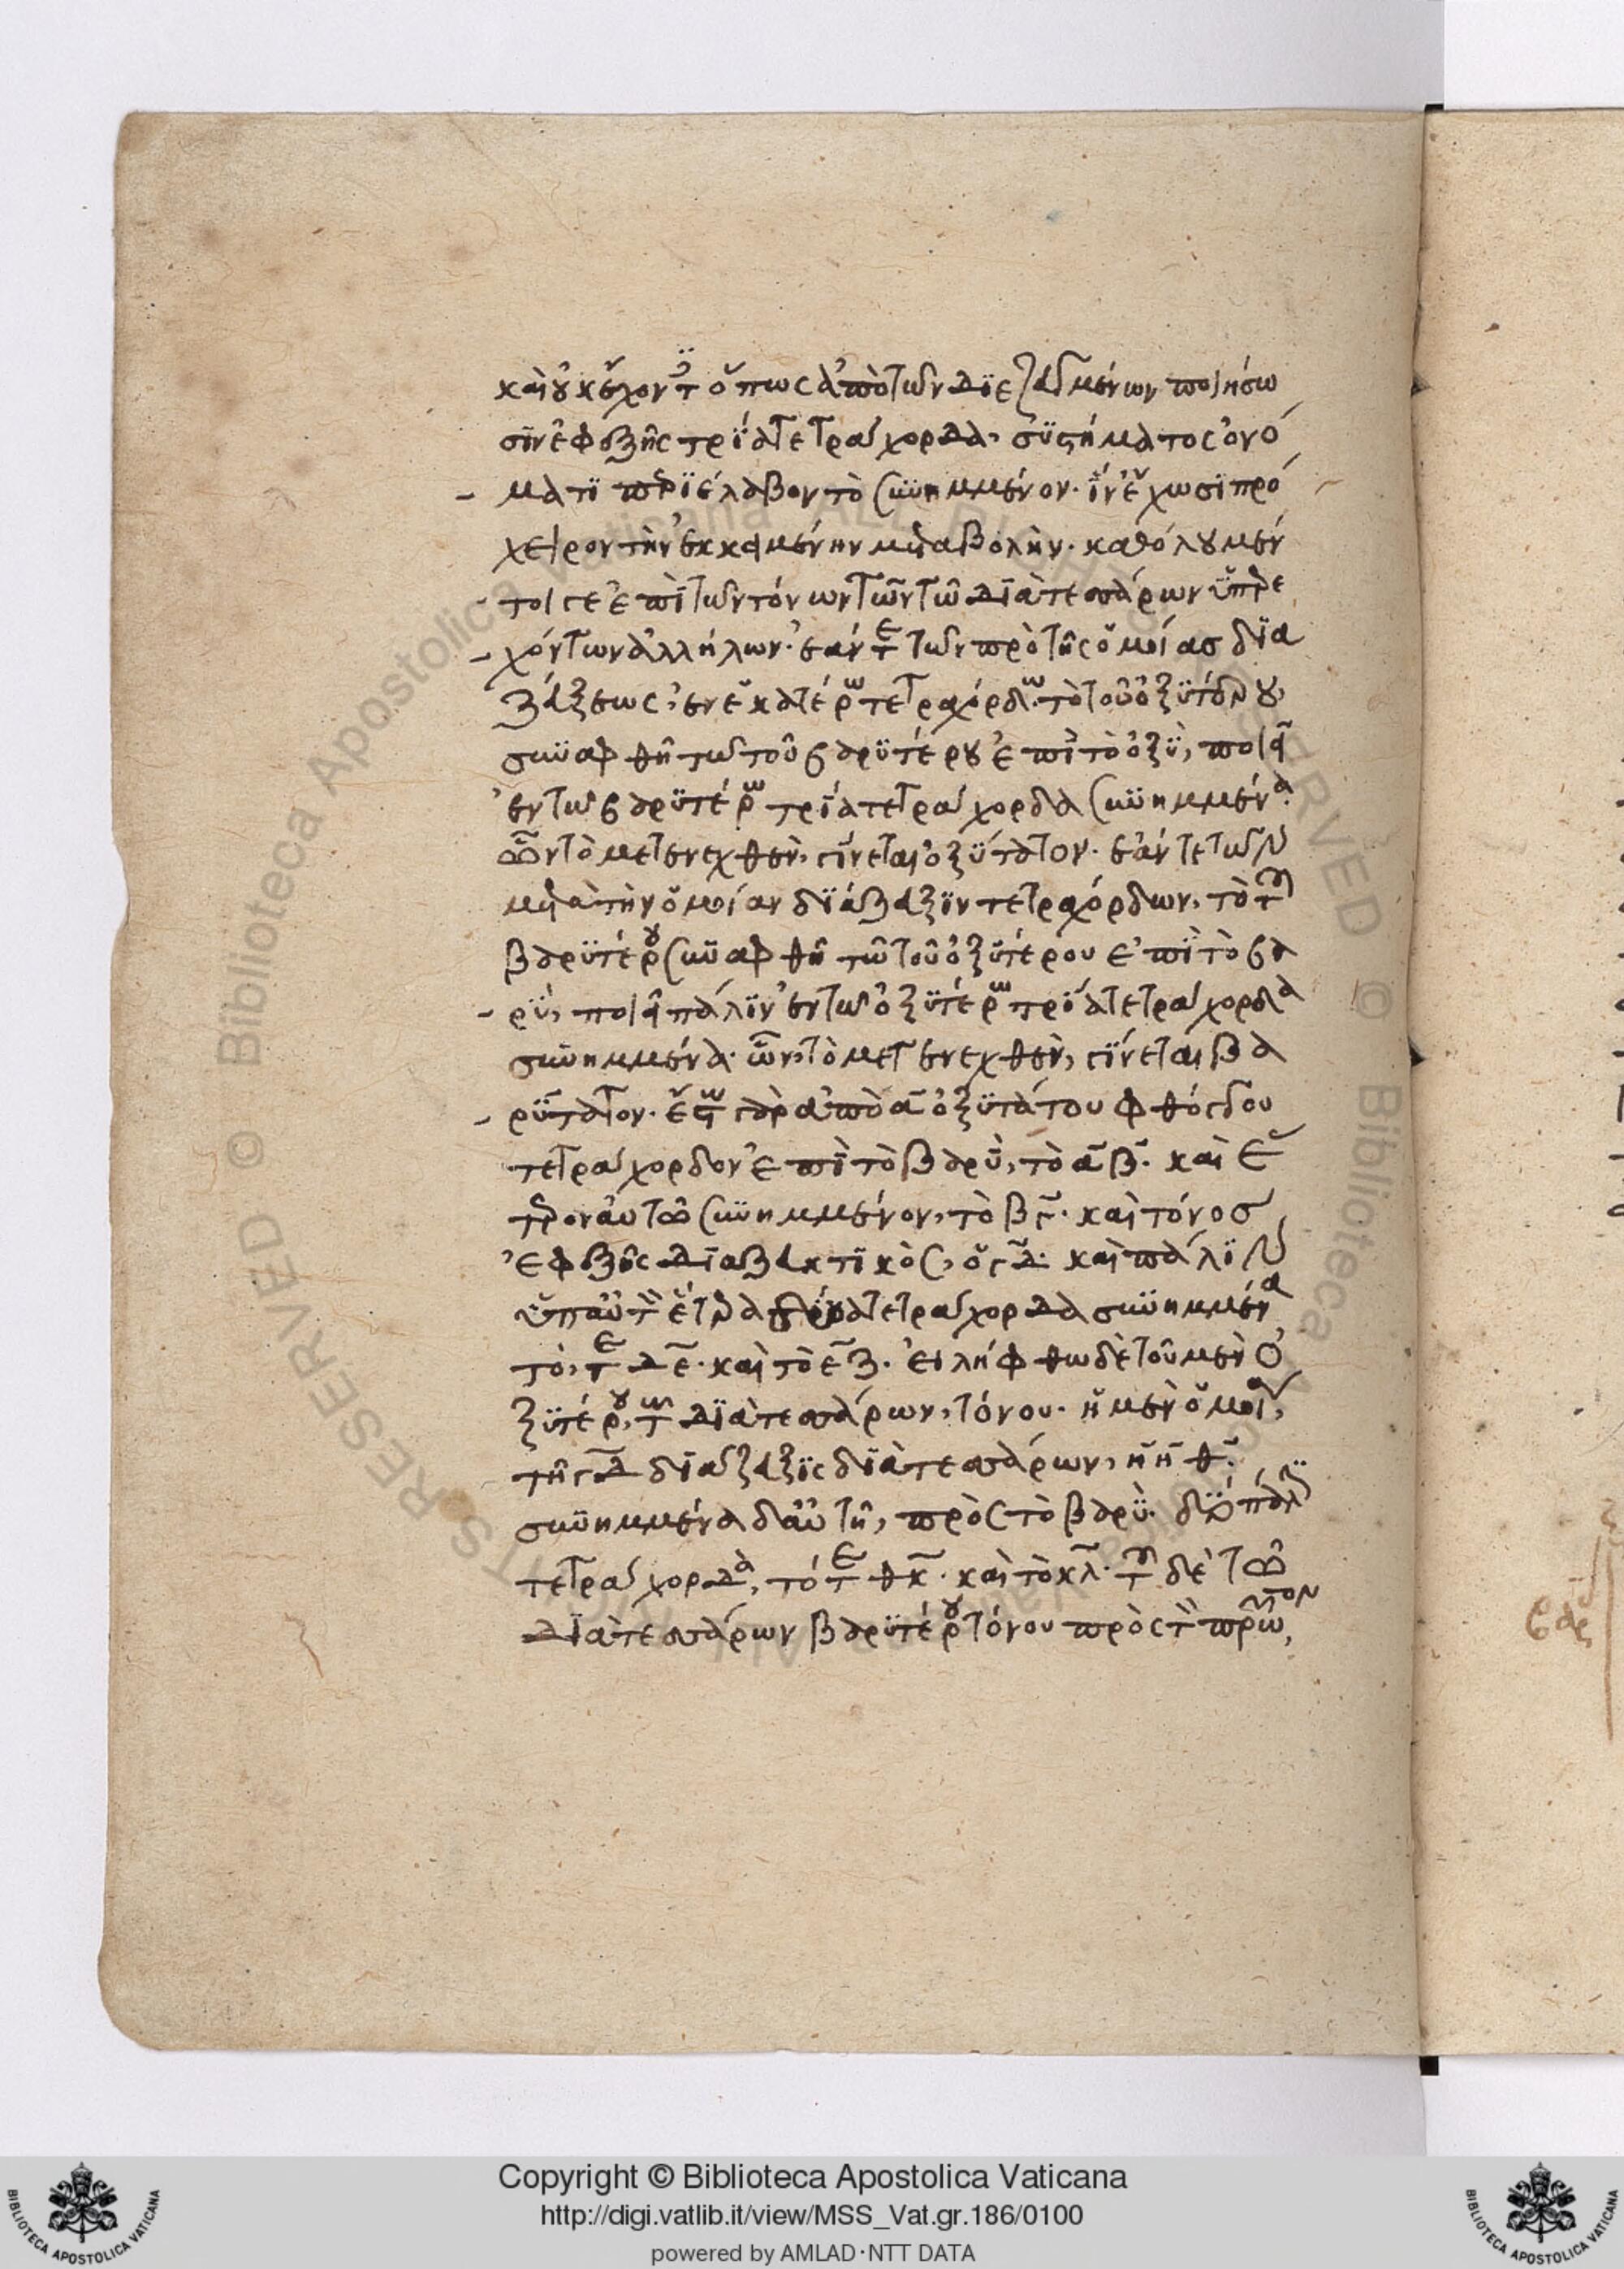 καὶ οὐκ εἶχον τ ὅπως ἀπὸ τῶν διεζευγμένων ποιήσω
σιν ἐφεξῆς τρία τετράχορδα, συστήματος ὀνό
ματι περιέλαβον τὸ συνημμένον. ἵν' ἔχωσι πρό
χειρον τὴν ἐκκειμένην μεταβολήν. καθόλου μέν
τοι γε ἐπὶ τῶν τόνων τῶν τῷ διὰ τεσσάρων ὑπερε
χόντων ἀλλήλων. ἐάν τε τῶν πρὸ τῆς ὁμοίας δια
ζεύξεως, ἐν ἑκατέρω τετραχόρδων τὸ τοῦ ὀξυτόνου,
συναφθῆ τῶ τοῦ βαρυτέρου ἐπὶ τὸ ὀξύ, ποιεῖ
ἐν τῶ βαρυτέρω τρία τετράχορδα συνημμένα.
ὧν τὸ μετενεχθὲν, γίνεται ὀξύτατον. ἐάν τε τῶν
μετὰ τὴν ὁμοίαν διάζευξιν τετραχόρδων, τὸ τοῦ
βαρυτέρου συναφθῆ τῶ τοῦ ὀξυτέρου ἐπὶ τὸ βα
ρύ, ποιεῖ πάλιν ἐν τῶ ὀξυτέρω τρία τετράχορδα
συνημμένα. ὧν, τὸ μετενεχθὲν, γίνεται βα
ρύτατον. ἔστω γὰρ ἀπὸ α ὀξυτάτου φθόγγου
τετράχορδον ἐπὶ τὸ βαρύ, τὸ αβ. καὶ ἕ
τερον αὐτῶ συνημμένον, τὸ βγ. καὶ τόνος
ἐφεξῆς διαζευκτικὸς, ὁ γδ. καὶ πάλιν
ὑπ' αὐτὸν ἕτερα δύο τετράχορδα συνημμένα
τό, τε δε. καὶ τὸ εζ. εἰλήφθω δὲ τοῦ μὲν ὀ
ξυτέρου, τῶ διὰ τεσσάρων, τόνου. ἡ μὲν ὁμοία,
τῆ γδ διάζευξις διὰ τεσσάρων, ἡ ηθ.
συνημμένα δ' αὐτῆ, πρὸς τὸ βαρύ. δύο πάλιν
τετράχορδα, τό τε θκ. καὶ τὸ κλ. τοῦ δὲ τῶ
διὰ τεσσάρων βαρυτέρου τόνου πρὸς τὸν πρῶτον,